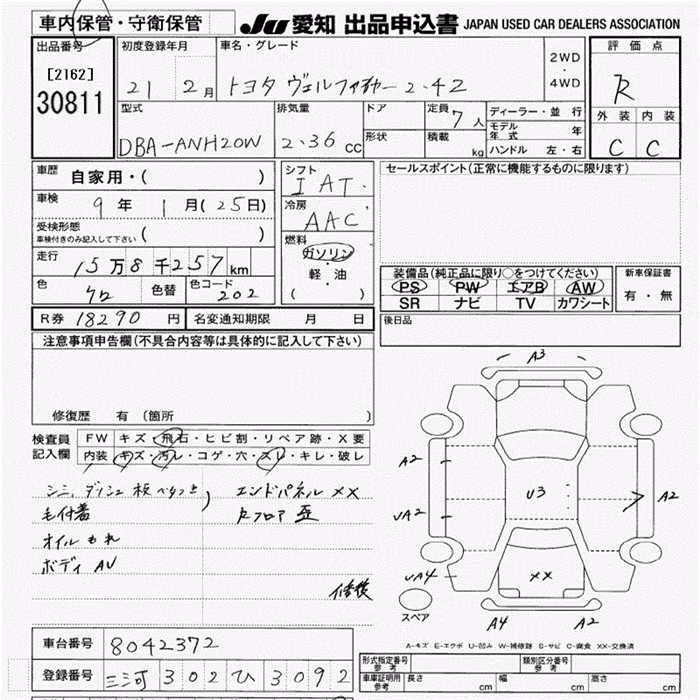 車内保管・守衛保管
JU 愛知 出品申込書 JAPAN USED CAR DEALERS ASSOCIATION
出品番号 [2162] 30811
初度登録年月 21 2月
車名・グレード トヨタ ヴェルファイヤー 2.4Z
2WD・4WD
評価点 R
外装 内装
C C
型式 DBA-ANH20W
排気量 2.36 cc
ドア
形状
定員 7人
積載 kg
ディーラー・並行
モデル年式 年
ハンドル 左・右
車歴 自家用・( )
車検 9年 1月(25日)
受検形態 車検付きのみ記入して下さい ( )
走行 15万8千257km
色 クロ 色替 色コード 202
シフト I AT
冷房 AAC
燃料 ガソリン・軽・油 ( )
セールスポイント(正常に機能するものに限ります)
装備品(純正品に限り○をつけてください)
PS PW エアB AW
SR ナビ TV カワシート
新車保証書 有・無
R券 18290円 名変通知期限 月 日
後日品
注意事項申告欄(不具合内容等は具体的に記入して下さい)
修復歴 有(箇所 )
検査員記入欄
FW キズ・飛石・ヒビ割・リペア跡・X要
内装 キズ・汚レ・コゲ・穴・スレ・キレ・破レ
シミ、ダッシュ板ベタつき エンドパネルXX
毛付着 Rフロア歪
オイルもれ
ボディAU
修復
A3
A2
UA2
U3
A2
UA4
XX
スペア
A4 A2
A-キズ E-エクボ U-凹み W-補修跡 S-サビ C-腐食 XX-交換済
車台番号 8042372
登録番号 三河 302 ひ 3092
形式指定番号 参考 類別区分番号 参考
車庫証明用 参考 長さ cm 幅 cm 高さ cm